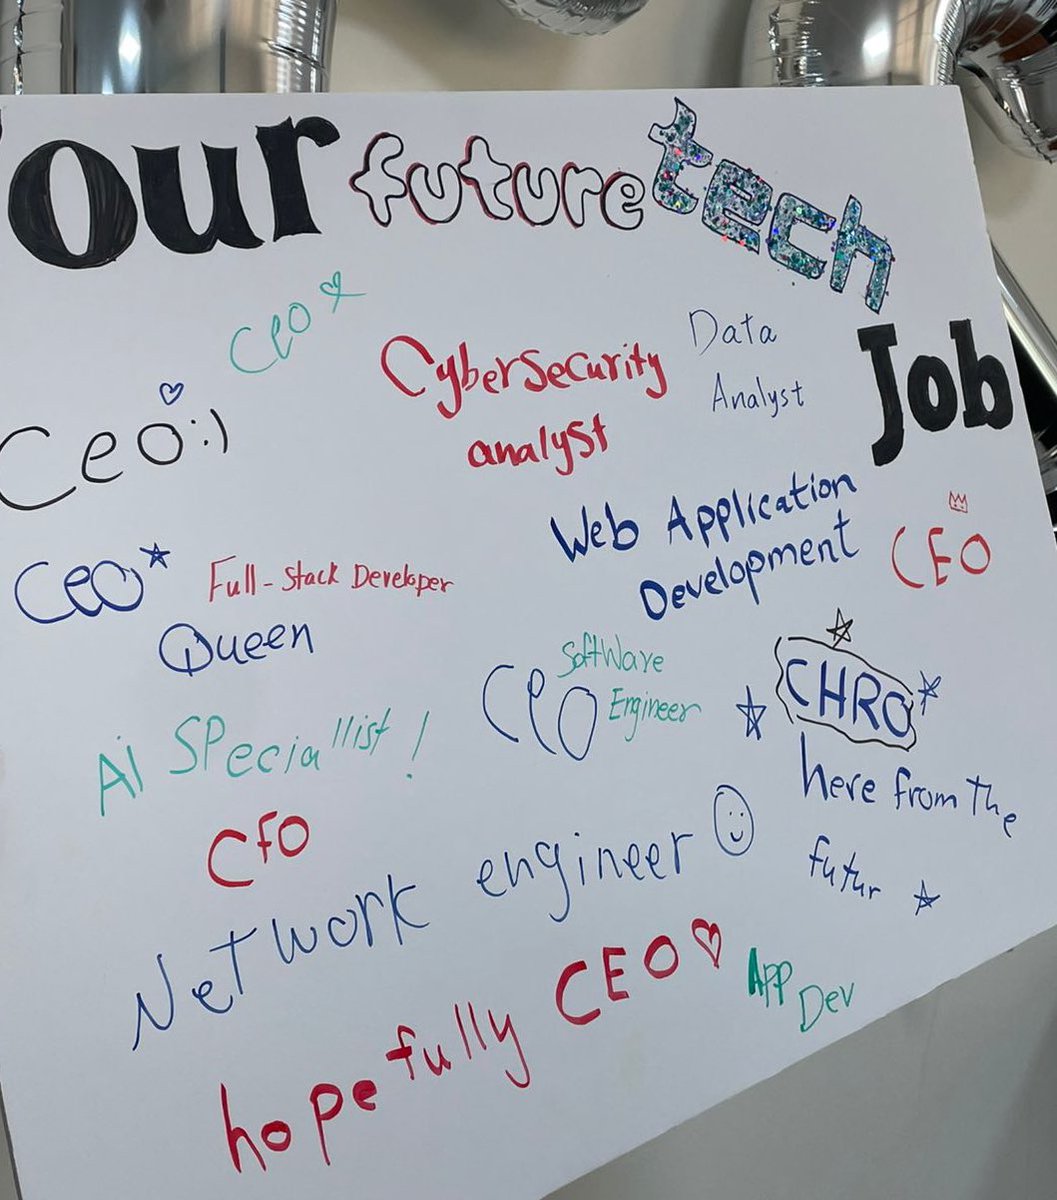 our future tech
Job
Ceo
Cybersecurity
analyst
Data
Analyst
Ceo:)
Web Application
Development
CEO
Ceo
Full-Stack Developer
Queen
Software
Engineer
CEO
CHRO
here from the
futur
Ai SPeciallist!
CFO
Network engineer
hopefully CEO
App
Dev